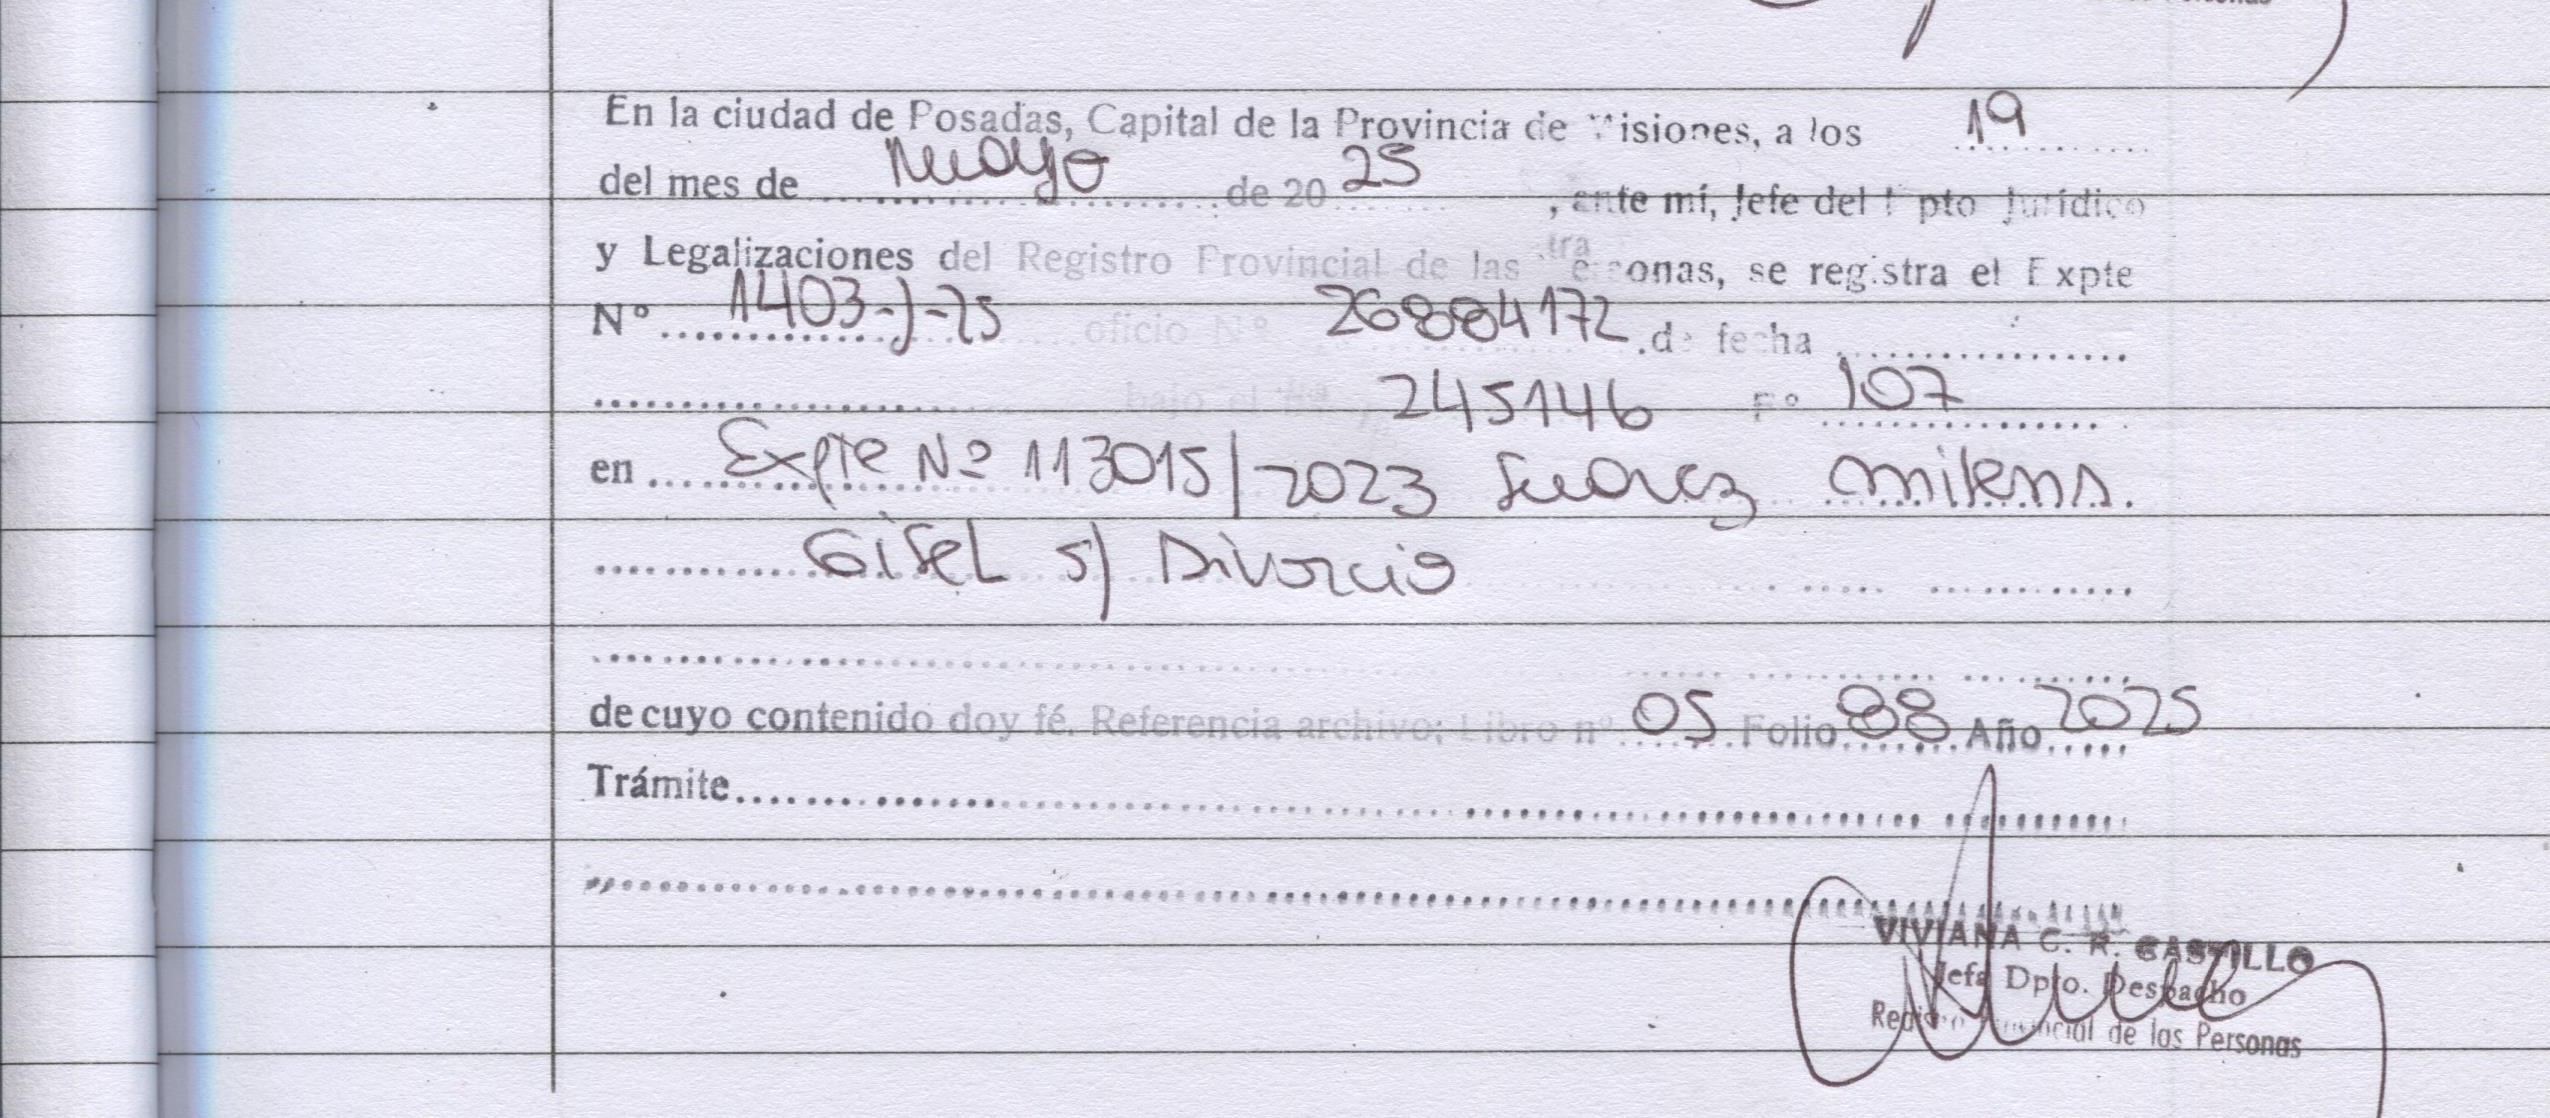 Personas
En la ciudad de Posadas, Capital de la Provincia de Misiones, a los 19
del mes de mayo de 20 25, ante mí, Jefe del Dpto Jurídico
y Legalizaciones del Registro Provincial de las Personas, se registra el Expte
Nº 1403-J-25 oficio Nº 26884172 de fecha
bajo el 245146 Fº 107
en Expte Nº 113015/2023 Suarez Milena
Gisel s/ Divorcio
de cuyo contenido doy fé. Referencia archivo; Libro nº 05 Folio 88 Año 2025
Trámite
VIVIANA C. R. CASTILLO
Jefa Dpto. Despacho
Registro Provincial de las Personas